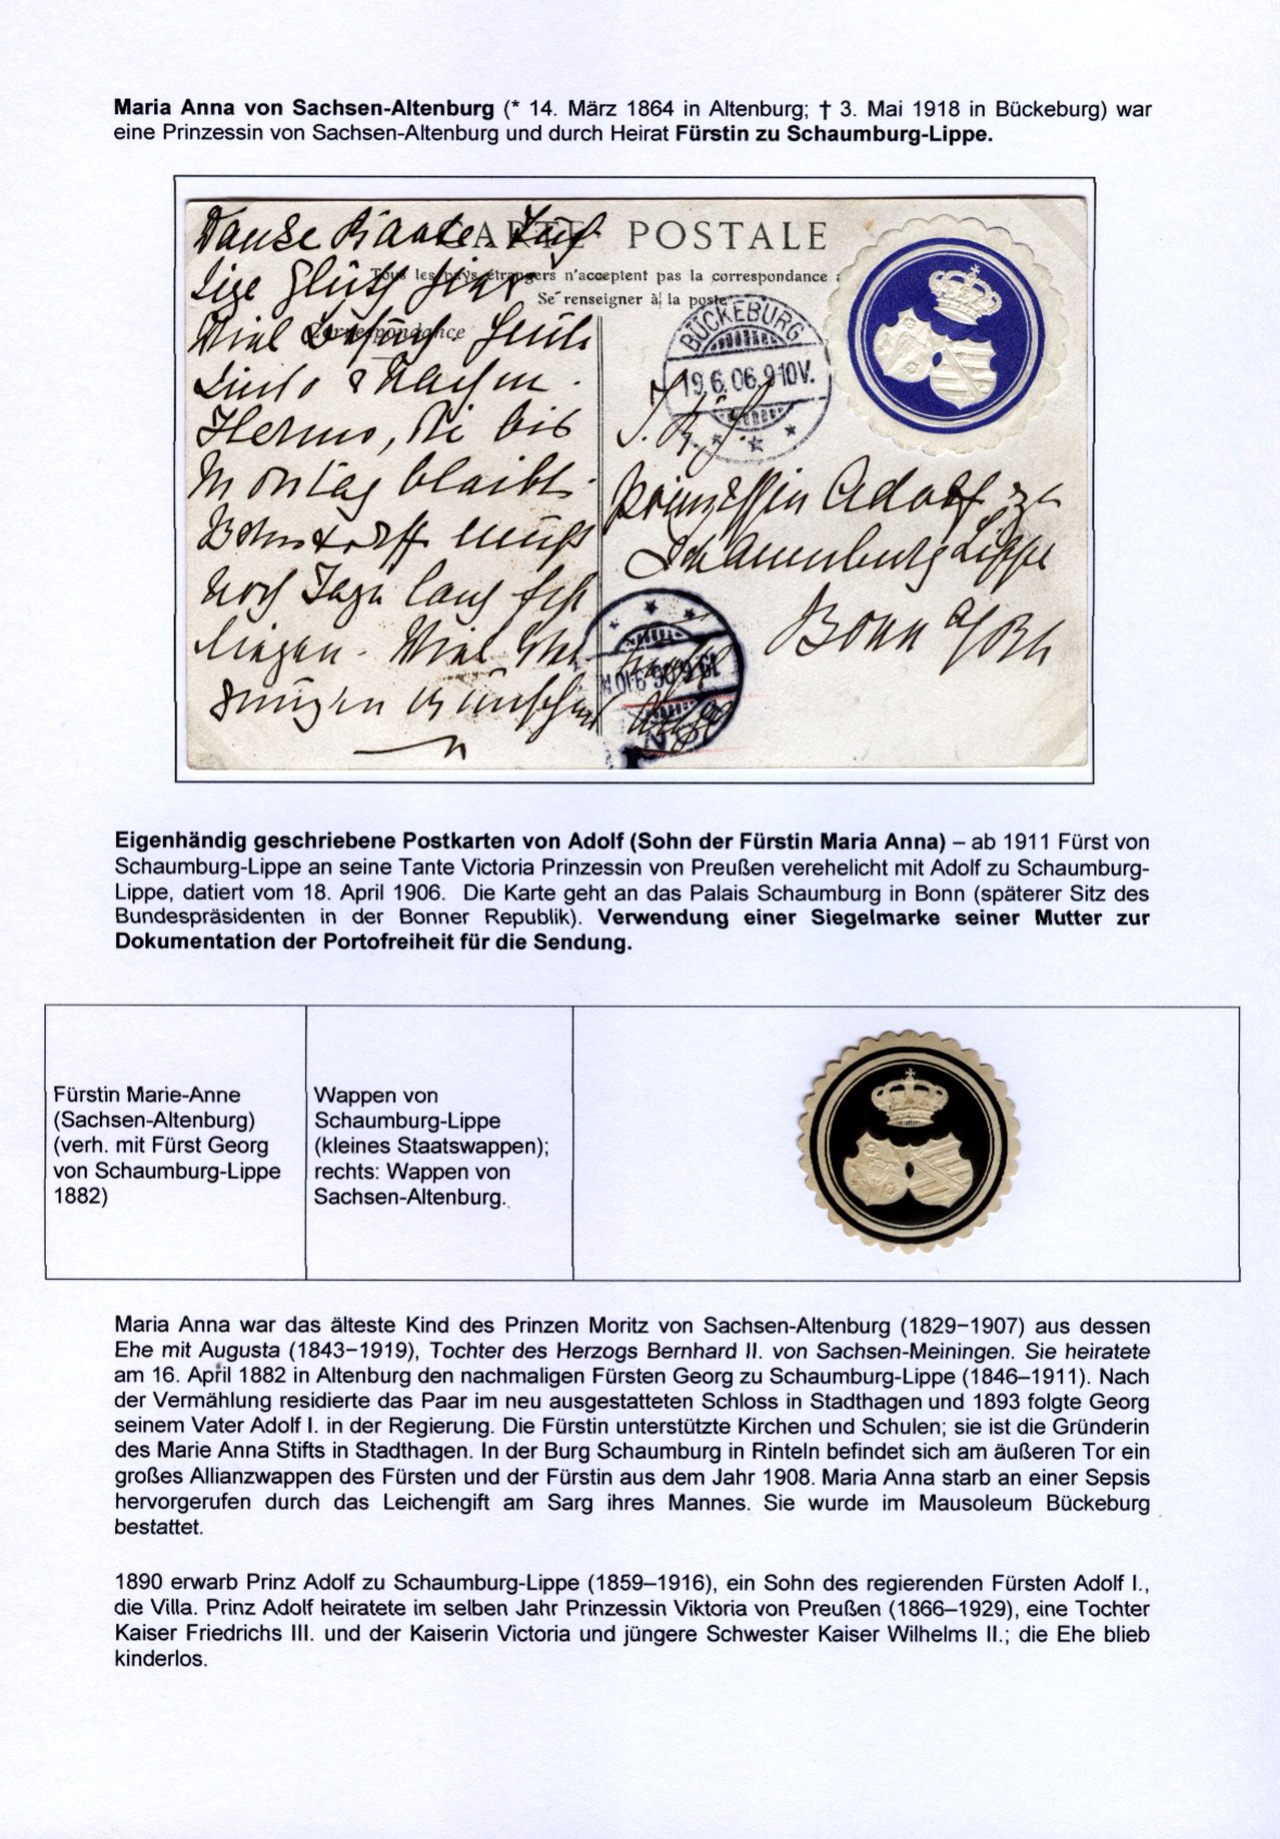 Maria Anna von Sachsen-Altenburg (* 14. März 1864 in Altenburg; † 3. Mai 1918 in Bückeburg) war
eine Prinzessin von Sachsen-Altenburg und durch Heirat Fürstin zu Schaumburg-Lippe.
CARTE POSTALE
Tous les pays étrangers n'acceptent pas la correspondance
Se renseigner à la poste
Correspondance
BÜCKEBURG
19.6.06.9-10V.
Viel
Montag bleibt.
noch
Viel
J. K. H.
Prinzessin Adolf zu
Schaumburg Lippe
Bonn a/Rh
Eigenhändig geschriebene Postkarten von Adolf (Sohn der Fürstin Maria Anna) – ab 1911 Fürst von
Schaumburg-Lippe an seine Tante Victoria Prinzessin von Preußen verehelicht mit Adolf zu Schaumburg-
Lippe, datiert vom 18. April 1906. Die Karte geht an das Palais Schaumburg in Bonn (späterer Sitz des
Bundespräsidenten in der Bonner Republik). Verwendung einer Siegelmarke seiner Mutter zur
Dokumentation der Portofreiheit für die Sendung.
Fürstin Marie-Anne
(Sachsen-Altenburg)
(verh. mit Fürst Georg
von Schaumburg-Lippe
1882)
Wappen von
Schaumburg-Lippe
(kleines Staatswappen);
rechts: Wappen von
Sachsen-Altenburg.
Maria Anna war das älteste Kind des Prinzen Moritz von Sachsen-Altenburg (1829–1907) aus dessen
Ehe mit Augusta (1843–1919), Tochter des Herzogs Bernhard II. von Sachsen-Meiningen. Sie heiratete
am 16. April 1882 in Altenburg den nachmaligen Fürsten Georg zu Schaumburg-Lippe (1846–1911). Nach
der Vermählung residierte das Paar im neu ausgestatteten Schloss in Stadthagen und 1893 folgte Georg
seinem Vater Adolf I. in der Regierung. Die Fürstin unterstützte Kirchen und Schulen; sie ist die Gründerin
des Marie Anna Stifts in Stadthagen. In der Burg Schaumburg in Rinteln befindet sich am äußeren Tor ein
großes Allianzwappen des Fürsten und der Fürstin aus dem Jahr 1908. Maria Anna starb an einer Sepsis
hervorgerufen durch das Leichengift am Sarg ihres Mannes. Sie wurde im Mausoleum Bückeburg
bestattet.
1890 erwarb Prinz Adolf zu Schaumburg-Lippe (1859–1916), ein Sohn des regierenden Fürsten Adolf I.,
die Villa. Prinz Adolf heiratete im selben Jahr Prinzessin Viktoria von Preußen (1866–1929), eine Tochter
Kaiser Friedrichs III. und der Kaiserin Victoria und jüngere Schwester Kaiser Wilhelms II.; die Ehe blieb
kinderlos.